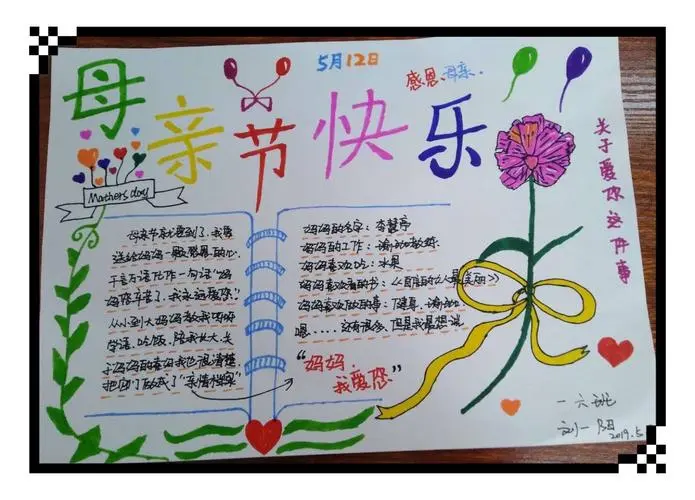 母亲节快乐
5月12日
感恩母亲.
Mathers day
关于爱你这件事
母亲节就要到了,我要
送给妈妈一颗感恩的心,
千言万语化作一句话"妈
妈您辛苦了,我永远爱您."
从小到大妈妈教我
学语、吃饭、陪我长大,关
于妈妈的喜好我也很清楚
把回了"亲情档案"
妈妈的名字:李慧序
妈妈的工作:瑜伽教练
妈妈喜欢吃:水果
妈妈喜欢看的书:《的女人最美丽》
妈妈喜欢做的事:健身、瑜伽
嗯......还有很多,但是我最想说
"妈妈,
我爱您"
一六班
刘一阳
2019.5